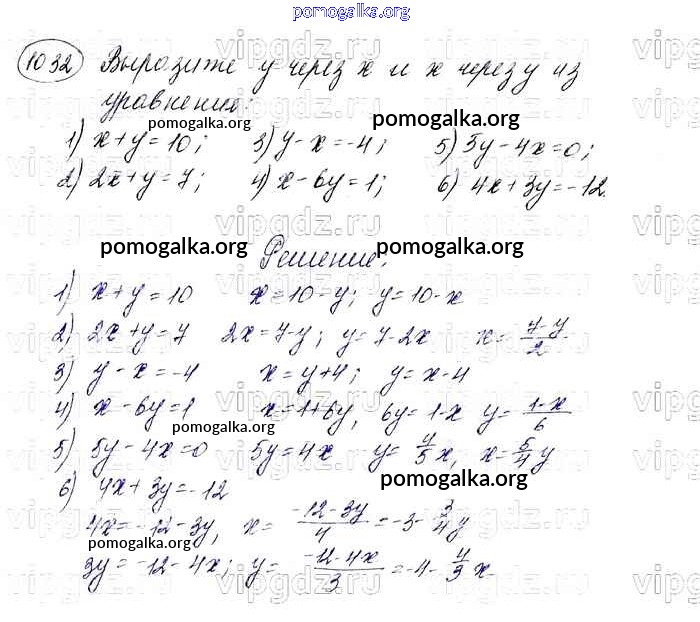 pomogalka.org
1032 Выразите y через x и x через y из
уравнения:
pomogalka.org pomogalka.org
1) x+y=10; 3) y-x=-4; 5) 5y-4x=0;
2) 2x+y=7; 4) x-6y=1; 6) 4x+3y=-12.
pomogalka.org Решение. pomogalka.org
1) x+y=10 x=10-y; y=10-x
2) 2x+y=7 2x=7-y; y=7-2x x=\frac{7-y}{2}
3) y-x=-4 x=y+4; y=x-4
4) x-6y=1 x=1+6y, 6y=1-x y=\frac{1-x}{6}
pomogalka.org
5) 5y-4x=0 5y=4x y=\frac{4}{5}x, x=\frac{5}{4}y
pomogalka.org
6) 4x+3y=-12
4x=-12-3y, x=\frac{-12-3y}{4}=-3-\frac{3}{4}y
pomogalka.org
3y=-12-4x; y=\frac{-12-4x}{3}=-4-\frac{4}{3}x
vipgdz.ru